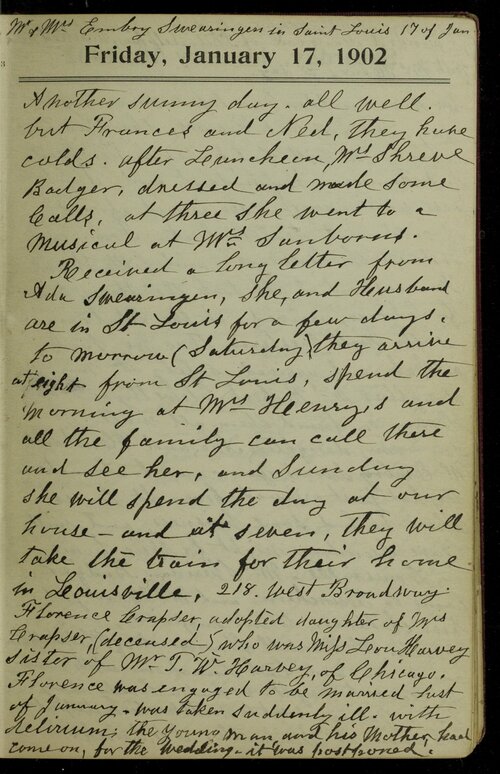 Mr & Mrs Embry Swearingen in Saint Louis 17 of Jan
Friday, January 17, 1902
Another sunny day. all well.
but Frances and Ned, they have
colds. after Luncheon, Mrs Shreve
Badger, dressed and made some
Calls, at three she went to a
Musical at Mrs Sanborns.
Received a long letter from
Ada Swearingen, She, and Husband
are in St Louis for a few days.
to morrow (Saturday) they arrive
at eight from St Louis, spend the
morning at Mrs Heenrys and
all the family can call there
and see her, and Sunday
she will spend the day at our
house - and at seven, they will
take the train for their home
in Leouisville, 218. West Broadway.
Florence Crapser, adopted daughter of Mrs
Crapser, (deceased) who was Miss Lou Harvey
sister of Mr T. W. Harvey, of Chicago.
Florence was engaged to be married first
of January - was taken suddenly ill. with
delirium, the young man and his Mother, had
come on, for the wedding - it was postponed.